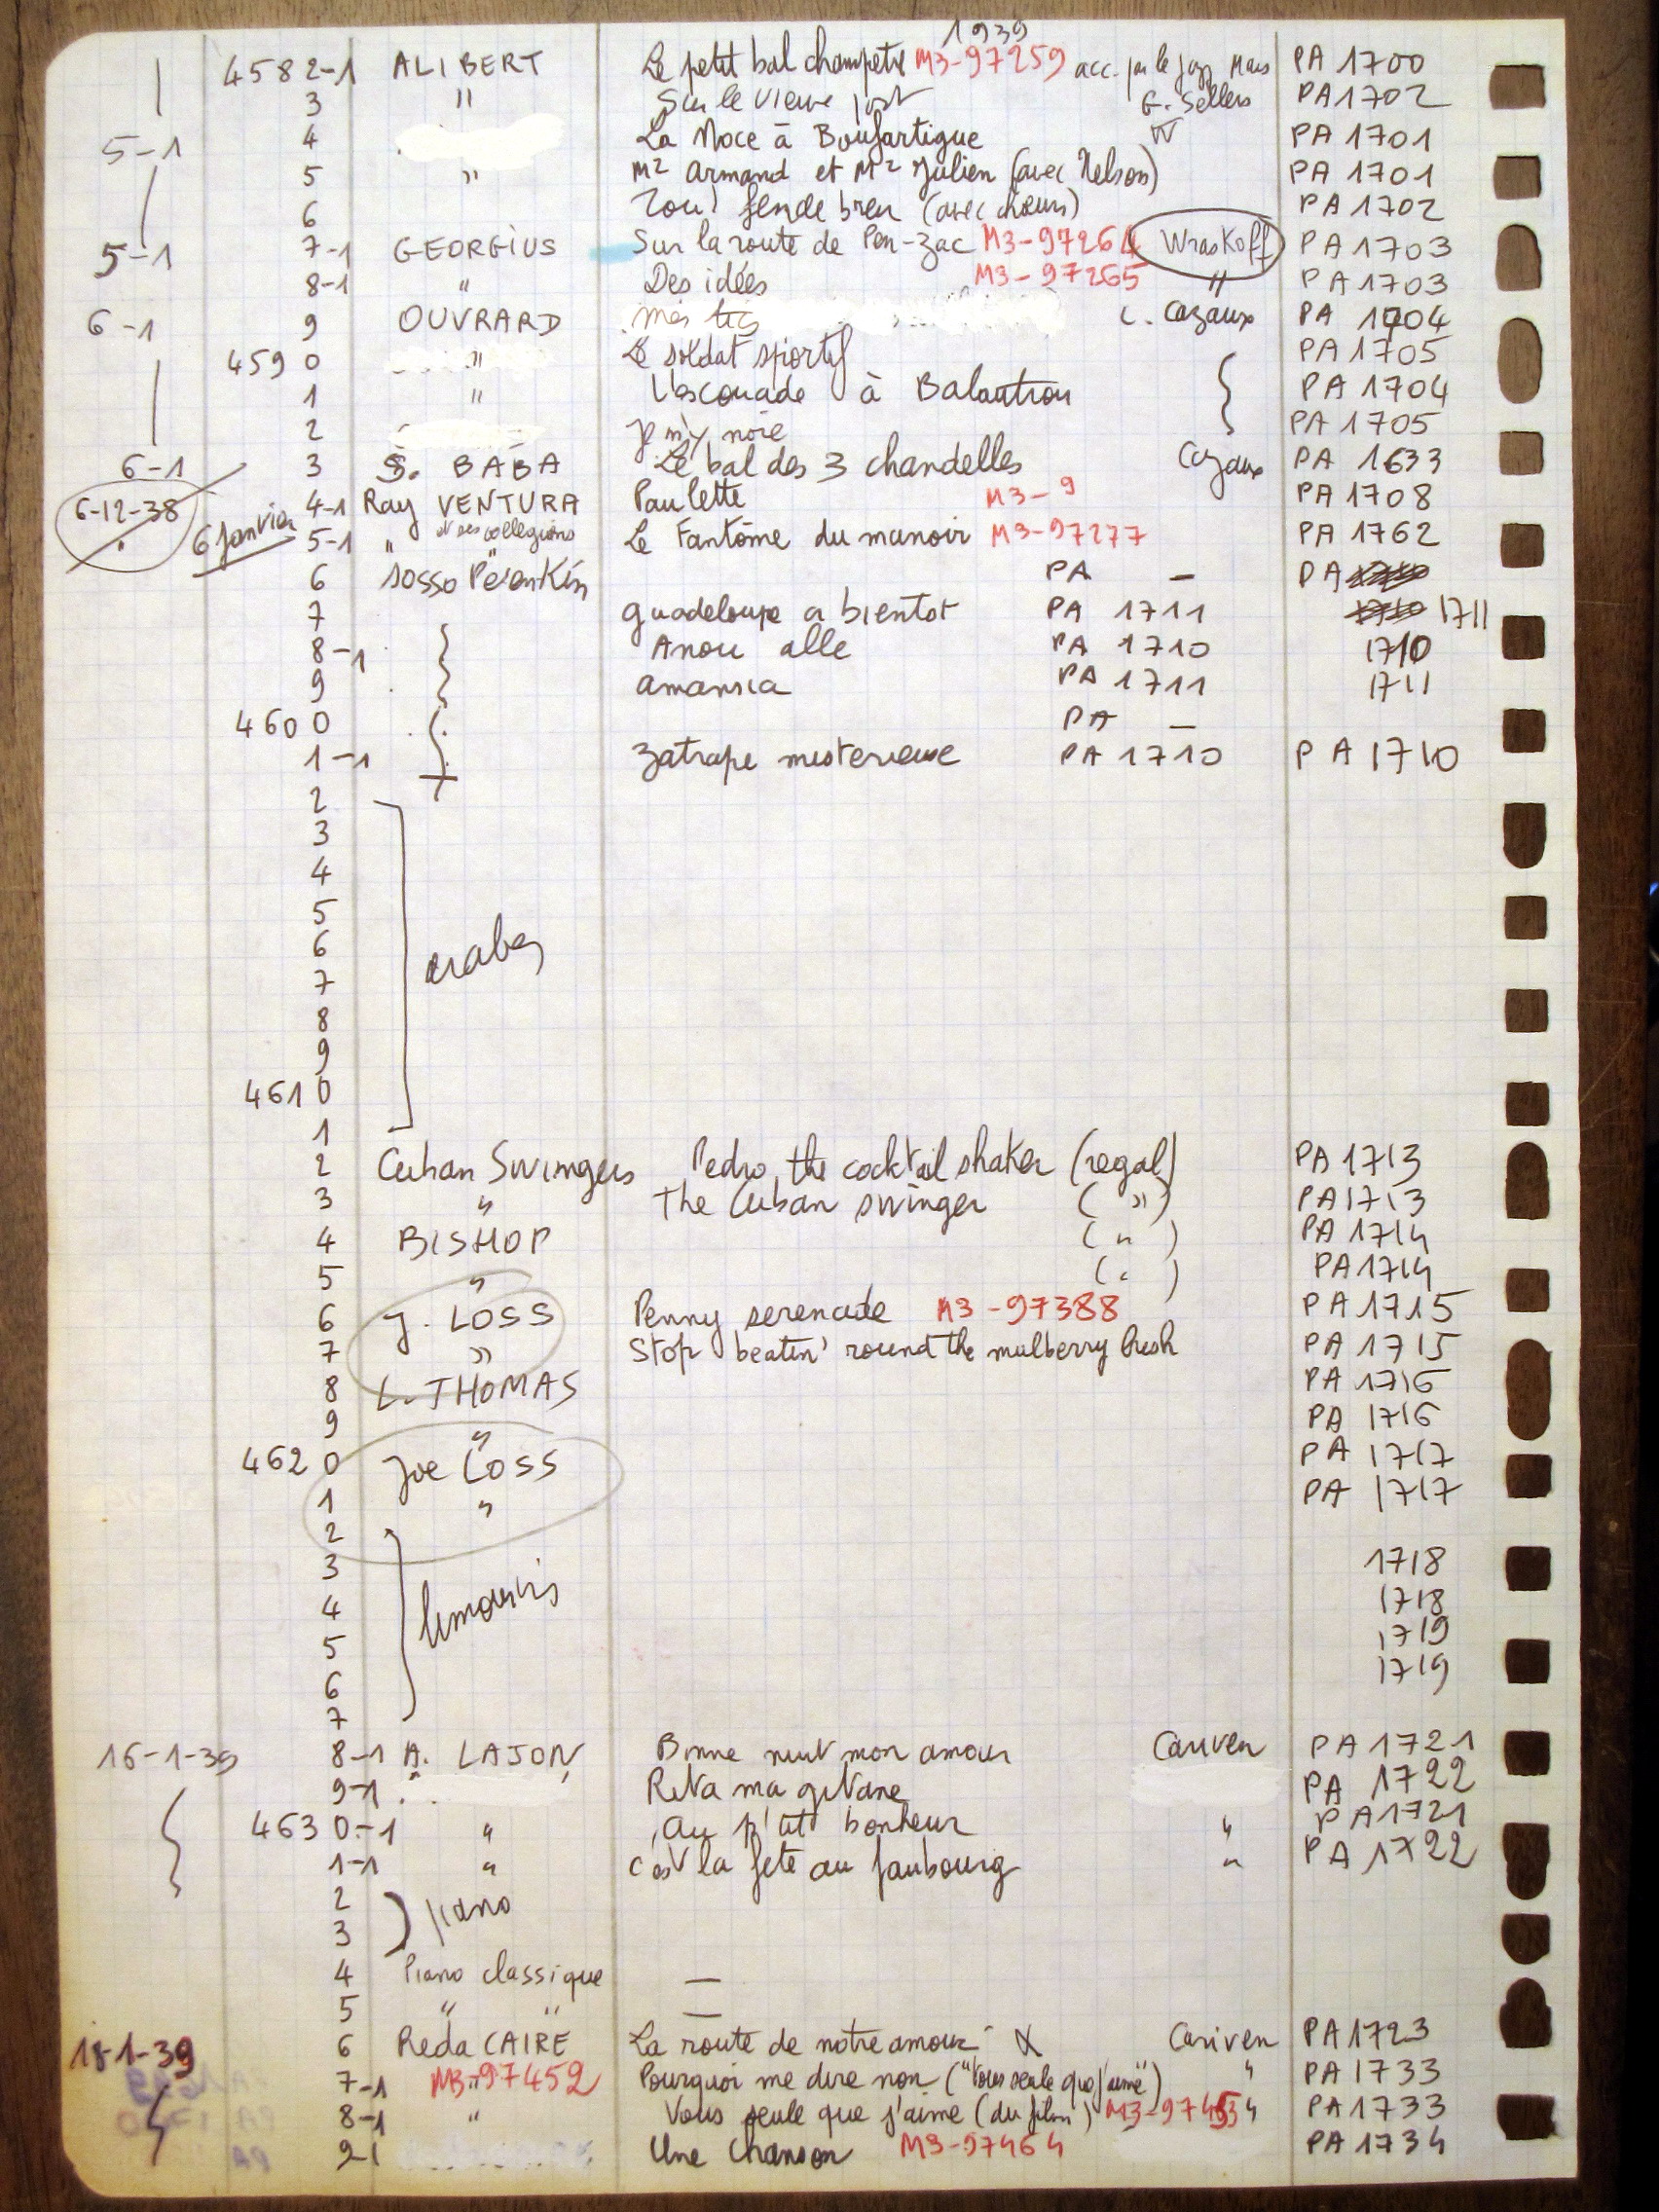 1939
4582-1 ALIBERT Le petit bal champetre M3-97259 acc. par le jazz Mars PA 1700
3 " Sur le vieux port G. Sellers PA 1702
5-1 4 La Noce à Boufartigue PA 1701
5 " Mr Armand et Mr Julien (avec Nelson) PA 1701
6 Zou! fende breu (avec chœurs) PA 1702
5-1 7-1 GEORGIUS Sur la route de Pen-Zac M3-97264 Wraskoff PA 1703
8-1 " Des idées M3-97265 " PA 1703
6-1 9 OUVRARD Mes tics C. Cazaux PA 1704
4590 " Le soldat sportif PA 1705
1 " L'escouade à Balautrou PA 1704
2 J'm'y noie PA 1705
6-1 3 S. BABA Le bal des 3 chandelles Cazaux PA 1633
6-12-38 4-1 Ray VENTURA Paulette M3-9 PA 1708
6 Janvier 5-1 " et ses collegiens " Le Fantôme du manoir M3-97277 PA 1762
6 Sosso Pé'en Kin PA — PA
7 guadeloupe a bientot PA 1711 1711
8-1 Anou alle PA 1710 1710
9 amansia PA 1711 1711
4600 PA —
1-1 Zatrape misterieuse PA 1710 PA 1710
2
3
4
5
6 arabes
7
8
9
4610
1
2 Cuban Swingers Pedro, the cocktail shaker (regal) PA 1713
3 " The Cuban swinger ( " ) PA 1713
4 BISHOP ( " ) PA 1714
5 " ( " ) PA 1714
6 J. LOSS Penny serenade M3-97388 PA 1715
7 " Stop beatin' round the mulberry bush PA 1715
8 L. THOMAS PA 1716
9 " PA 1716
4620 Joe LOSS PA 1717
1 " PA 1717
2
3 1718
4 limousins 1718
5 1719
6 1719
7
16-1-39 8-1 A. LAJON Bonne nuit mon amour Cariven PA 1721
9-1 " Rita ma gitane PA 1722
4630-1 " Au p'tit bonheur " PA 1721
1-1 " c'est la fete au faubourg " PA 1722
2 piano
3
4 Piano classique —
5 " " —
18-1-39 6 Reda CAIRE La route de notre amour X Cariven PA 1723
7-1 " M3-97452 Pourquoi me dire non ("Vous seule que j'aime") " PA 1733
8-1 " Vous seule que j'aime (du film) M3-97453 " PA 1733
9-1 Une chanson M3-97464 PA 1734